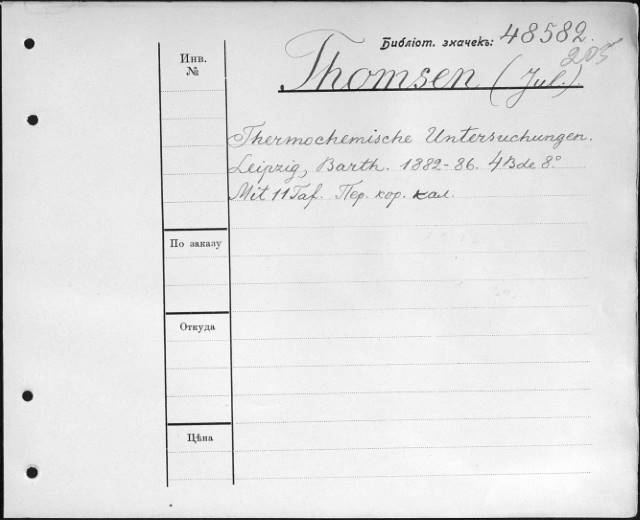 Библіот. значекъ: 48582.
205
Инв.
№
Thomsen (Jul.)
Thermochemische Untersuchungen.
Leipzig, Barth. 1882-86. 4 Bde 8°.
Mit 11 Taf. Пер. кор. кал.
По заказу
Откуда
Цѣна